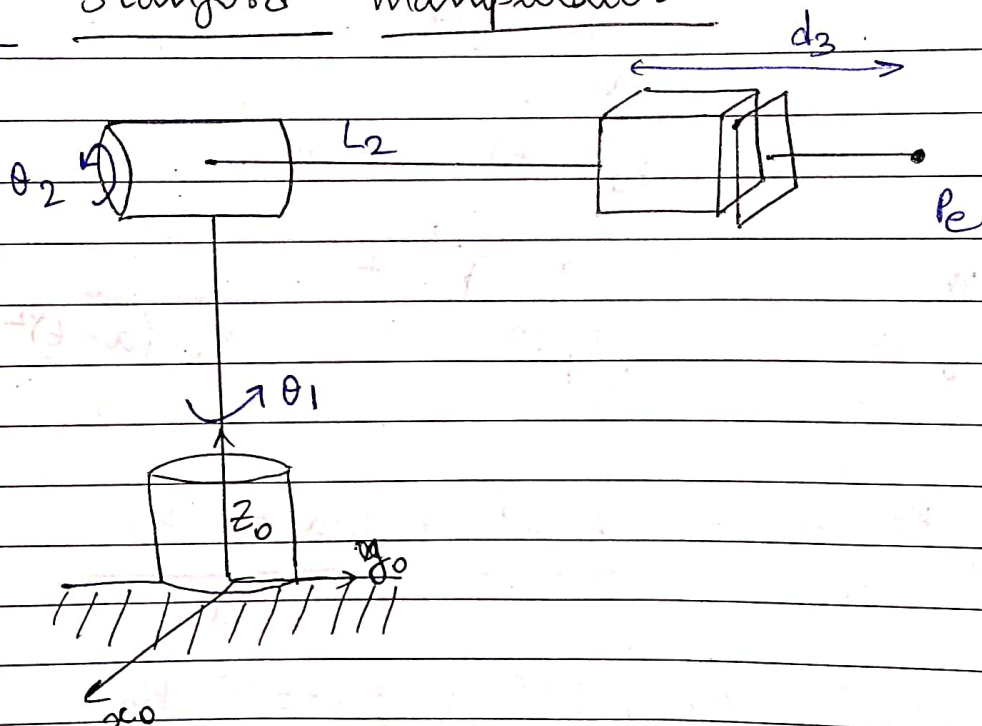 Stanford Manipulator
d3
L2
θ2
Pe
θ1
Z0
y0
x0